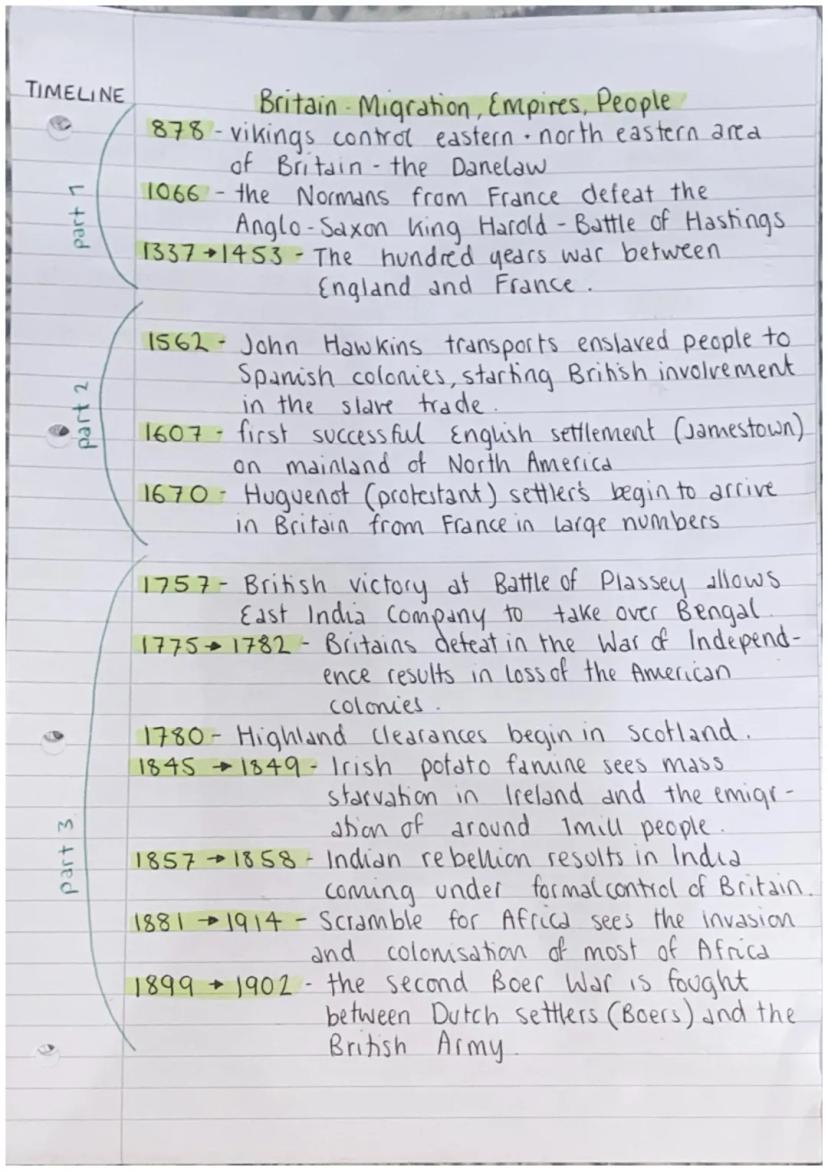 TIMELINE
Britain - Migration, Empires, People
part 1
878 - vikings control eastern · north eastern area
of Britain - the Danelaw
1066 - the Normans from France defeat the
Anglo-Saxon King Harold - Battle of Hastings
1337 → 1453 - The hundred years war between
England and France.
part 2
1562 - John Hawkins transports enslaved people to
Spanish colonies, starting British involvement
in the slave trade.
1607 - first successful English settlement (Jamestown)
on mainland of North America
1670 - Huguenot (protestant) settlers begin to arrive
in Britain from France in large numbers
part 3
1757 - British victory at Battle of Plassey allows
East India Company to take over Bengal.
1775 → 1782 - Britains defeat in the War of Independ-
ence results in loss of the American
colonies.
1780 - Highland Clearances begin in Scotland.
1845 → 1849 - Irish potato famine sees mass
starvation in Ireland and the emigr-
ation of around 1mill people.
1857 → 1858 - Indian rebellion results in India
coming under formal control of Britain.
1881 → 1914 - Scramble for Africa sees the invasion
and colonisation of most of Africa
1899 → 1902 - the second Boer War is fought
between Dutch settlers (Boers) and the
British Army.